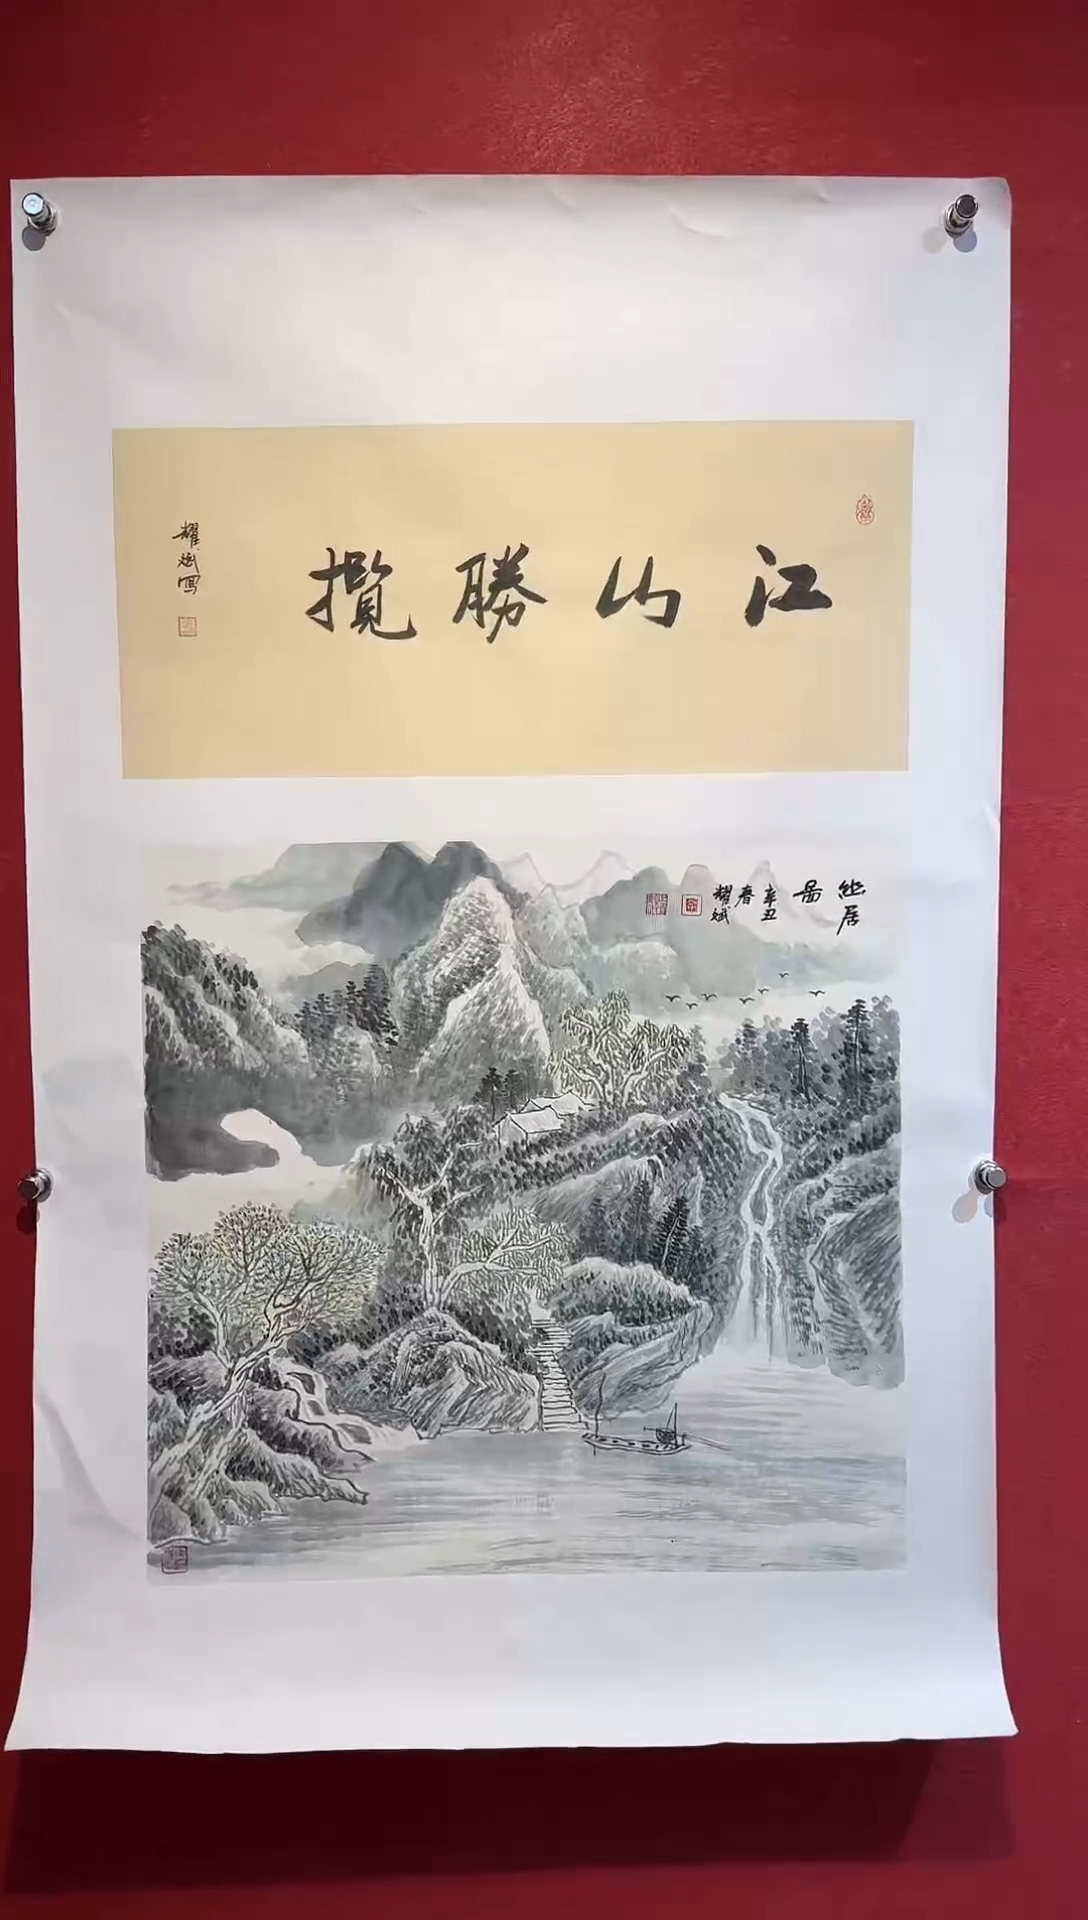 江山勝攬
耀斌寫
幽居
圖
辛丑
春
耀斌